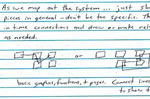 As we map out the system ... just sh
pieces in general - don't be too specific. Th
in time connections and draw or make not
as needed.
or
basic graphics, functions, & paper. Connect lines
to share t